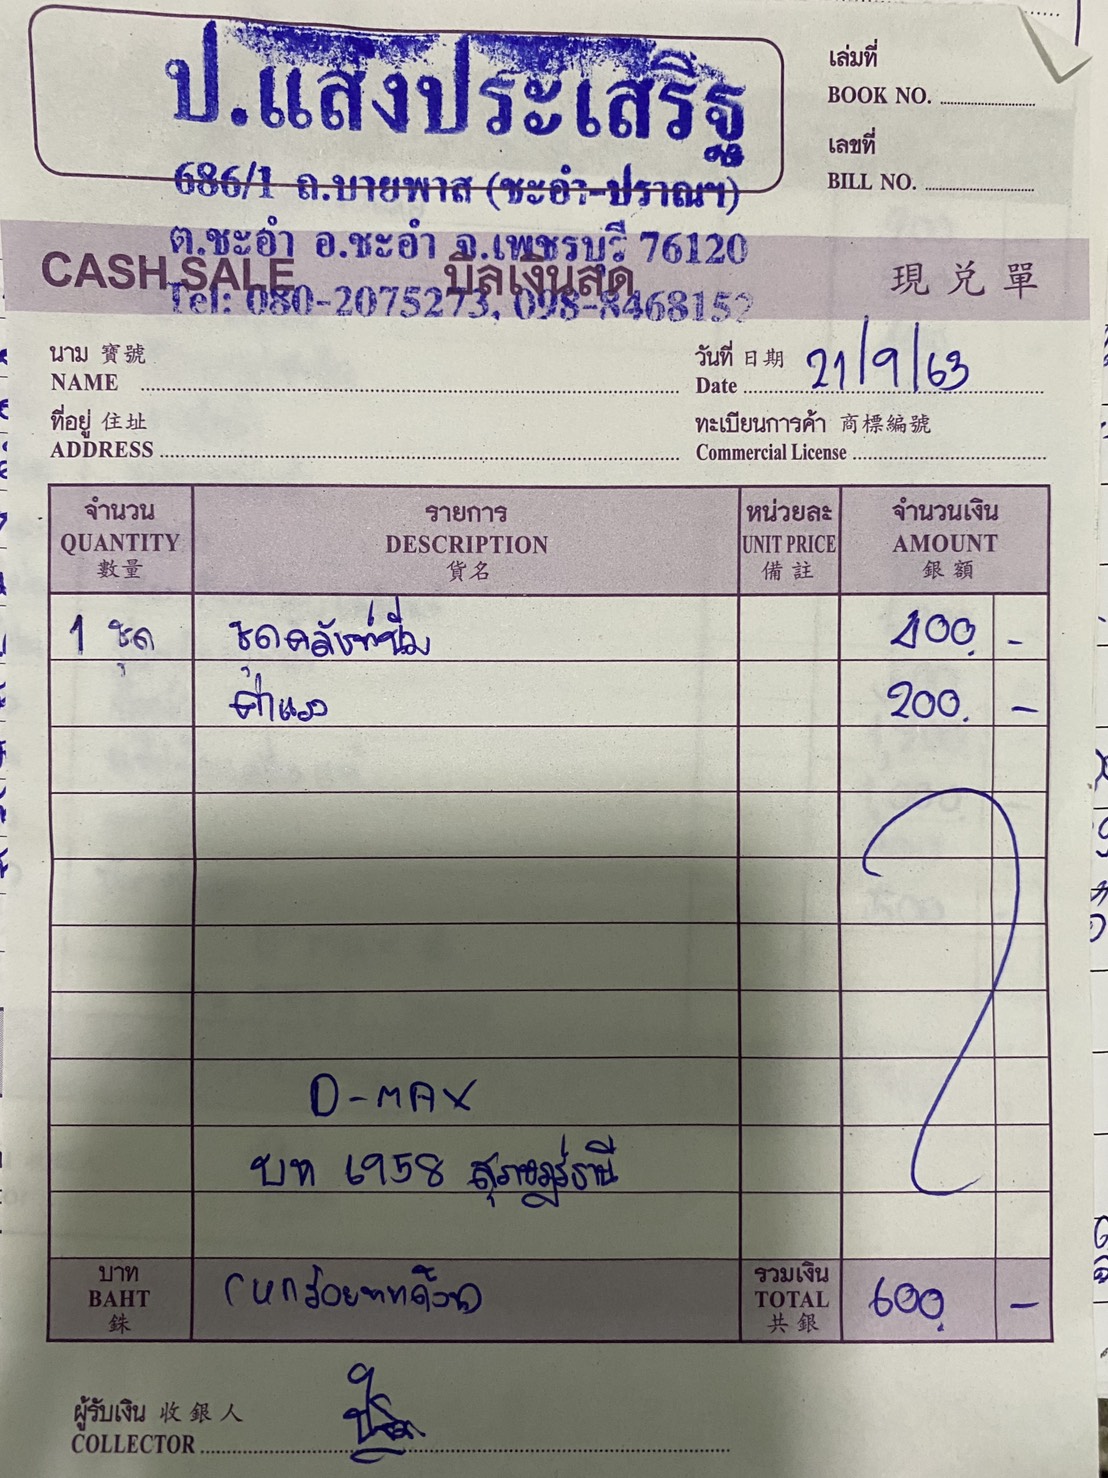 ป.แสงประเสริฐ
686/1 ถ.บายพาส (ชะอำ-ปราณฯ)
ต.ชะอำ อ.ชะอำ จ.เพชรบุรี 76120
Tel: 080-2075273, 098-8468152
เล่มที่
BOOK NO.
เลขที่
BILL NO.
CASH SALE บิลเงินสด 現兌單
นาม 寶號
NAME
วันที่ 日期
Date 21/9/63
ที่อยู่ 住址
ADDRESS
ทะเบียนการค้า 商標編號
Commercial License
จำนวน รายการ หน่วยละ จำนวนเงิน
QUANTITY DESCRIPTION UNIT PRICE AMOUNT
數量 貨名 備註 銀額
1 ชุด ชุดคลัทช์ 400.-
ค่าแรง 200.-
D-MAX
บท 6958 สุราษฎร์ธานี
บาท
BAHT
銖
(หกร้อยบาทถ้วน)
รวมเงิน
TOTAL
共銀
600.-
ผู้รับเงิน 收銀人
COLLECTOR